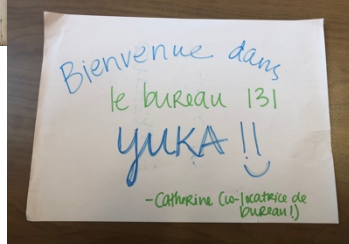 Bienvenue dans
le bureau 131
YUKA !!
- Catherine (co-locatrice de
bureau!)